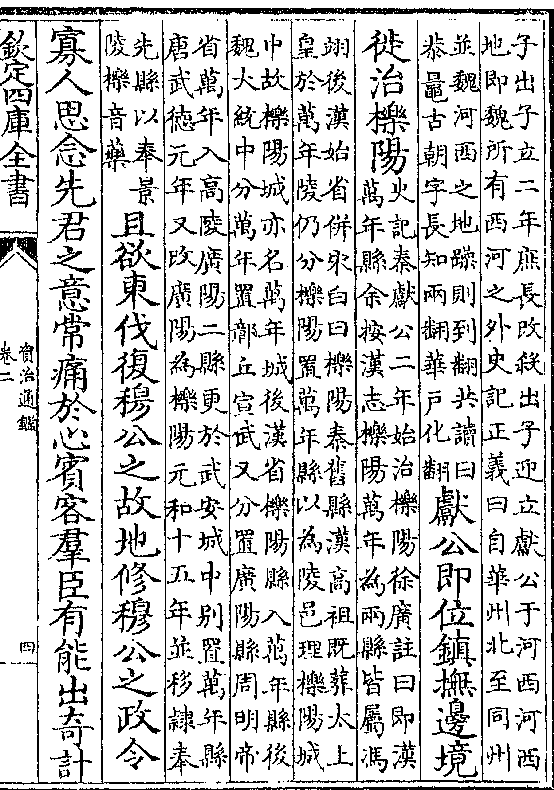 子出子立二年庶長改殺出子迎立獻公于河西河西
地即魏所有西河之外史記正義曰自華州北至同州
並魏河西之地躁則到翻共讀曰
恭鼂古朝字長知兩翻華戸化翻
獻公即位鎮撫邊境
徙治櫟陽
史記秦獻公二年始治櫟陽徐廣註曰即漢
萬年縣余按漢志櫟陽萬年為兩縣皆屬馮
翊後漢始省併宋白曰櫟陽秦舊縣漢高祖既葬太上
皇於萬年陵仍分櫟陽置萬年縣以為陵邑理櫟陽城
中故櫟陽城亦名萬年城後漢省櫟陽縣入萬年縣後
魏大統中分萬年置鄣丘宣武又分置廣陽縣周明帝
省萬年入高陵廣陽二縣更於武安城中别置萬年縣
唐武德元年又改廣陽為櫟陽元和十五年並移隷奉
先縣以奉景
陵櫟音藥
且欲東伐復穆公之故地修穆公之政令
寡人思念先君之意常痛於心賓客羣臣有能出奇計
欽定四庫全書
資治通鑑
卷二
四